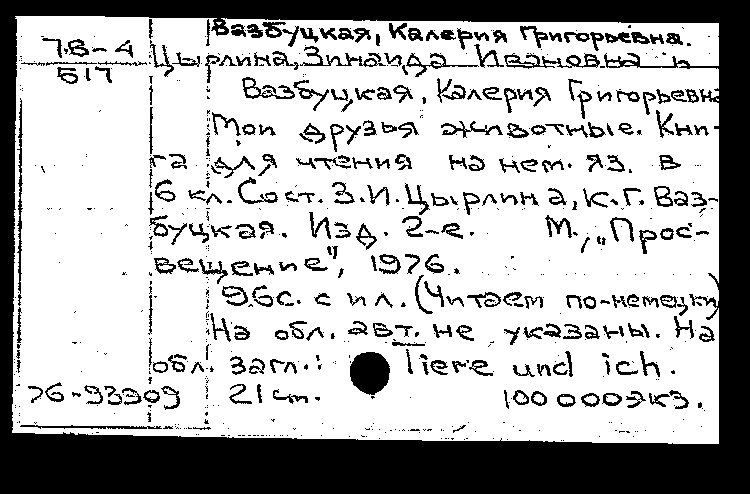 Вазбуцкая, Калерия Григорьевна.
7В-4
Цырлина, Зинаида Ивановна и
517
Вазбуцкая, Калерия Григорьевна
Мои друзья животные. Кни-
га для чтения на нем. яз. в
6 кл. Сост. З.И. Цырлина, К.Г. Ваз-
буцкая. Изд. 2-е. М., „Прос-
вещение", 1976.
96с. с ил. (Читаем по-немецки)
На обл. авт. не указаны. На
обл. загл.: Tiere und ich.
76-93909 21 cm. 100 000 экз.